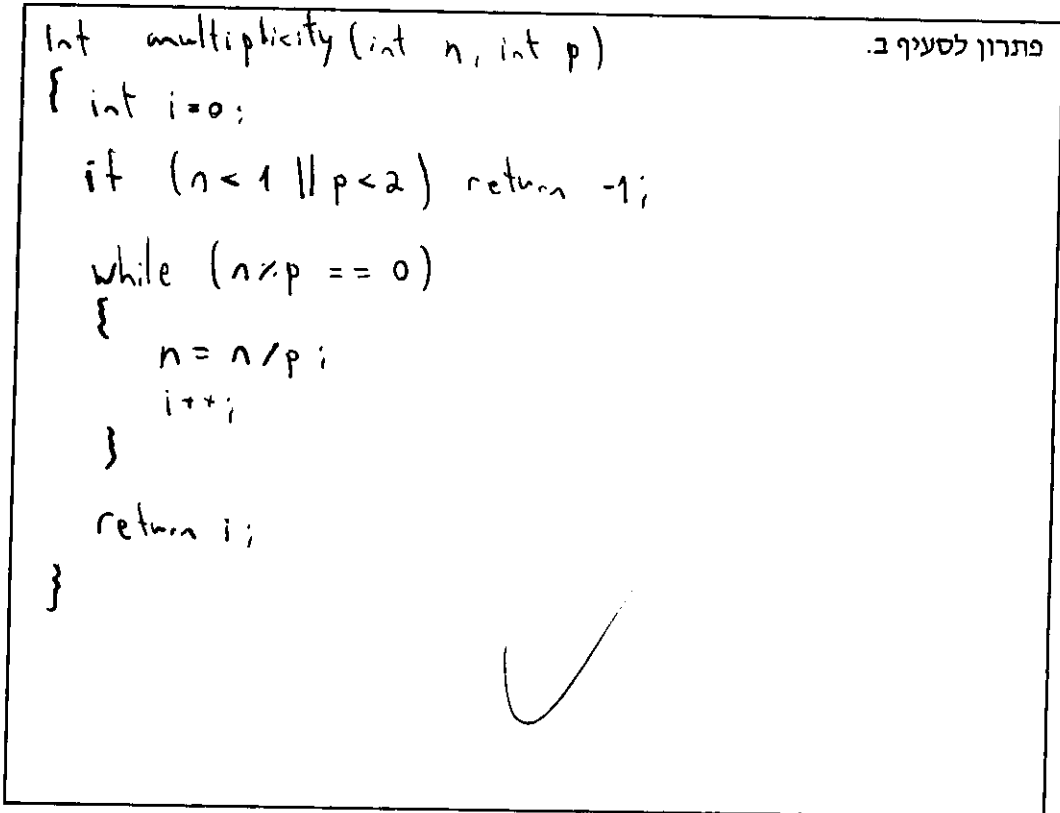 פתרון לסעיף ב.
int multiplicity (int n, int p)
{ int i=0;
if (n < 1 || p < 2) return -1;
while (n%p == 0)
{
n = n/p;
i++;
}
return i;
}